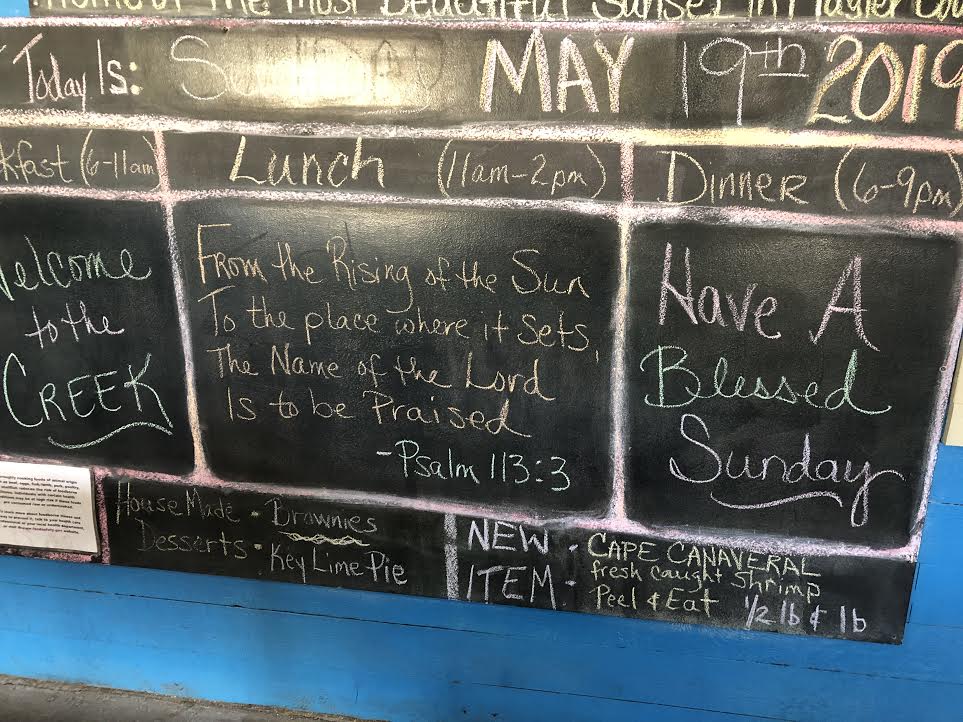 Home of the Most Beautiful Sunset in Flagler Cou
Today Is: Sunday MAY 19th 2019
kfast (6-11am)
Lunch (11am-2pm)
Dinner (6-9pm)
Welcome
to the
CREEK
From the Rising of the Sun
To the place where it Sets,
The Name of the Lord
Is to be Praised
-Psalm 113:3
Have A
Blessed
Sunday
House Made • Brownies
Desserts • Key Lime Pie
NEW - CAPE CANAVERAL
ITEM - fresh caught Shrimp
Peel & Eat 1/2 lb & lb